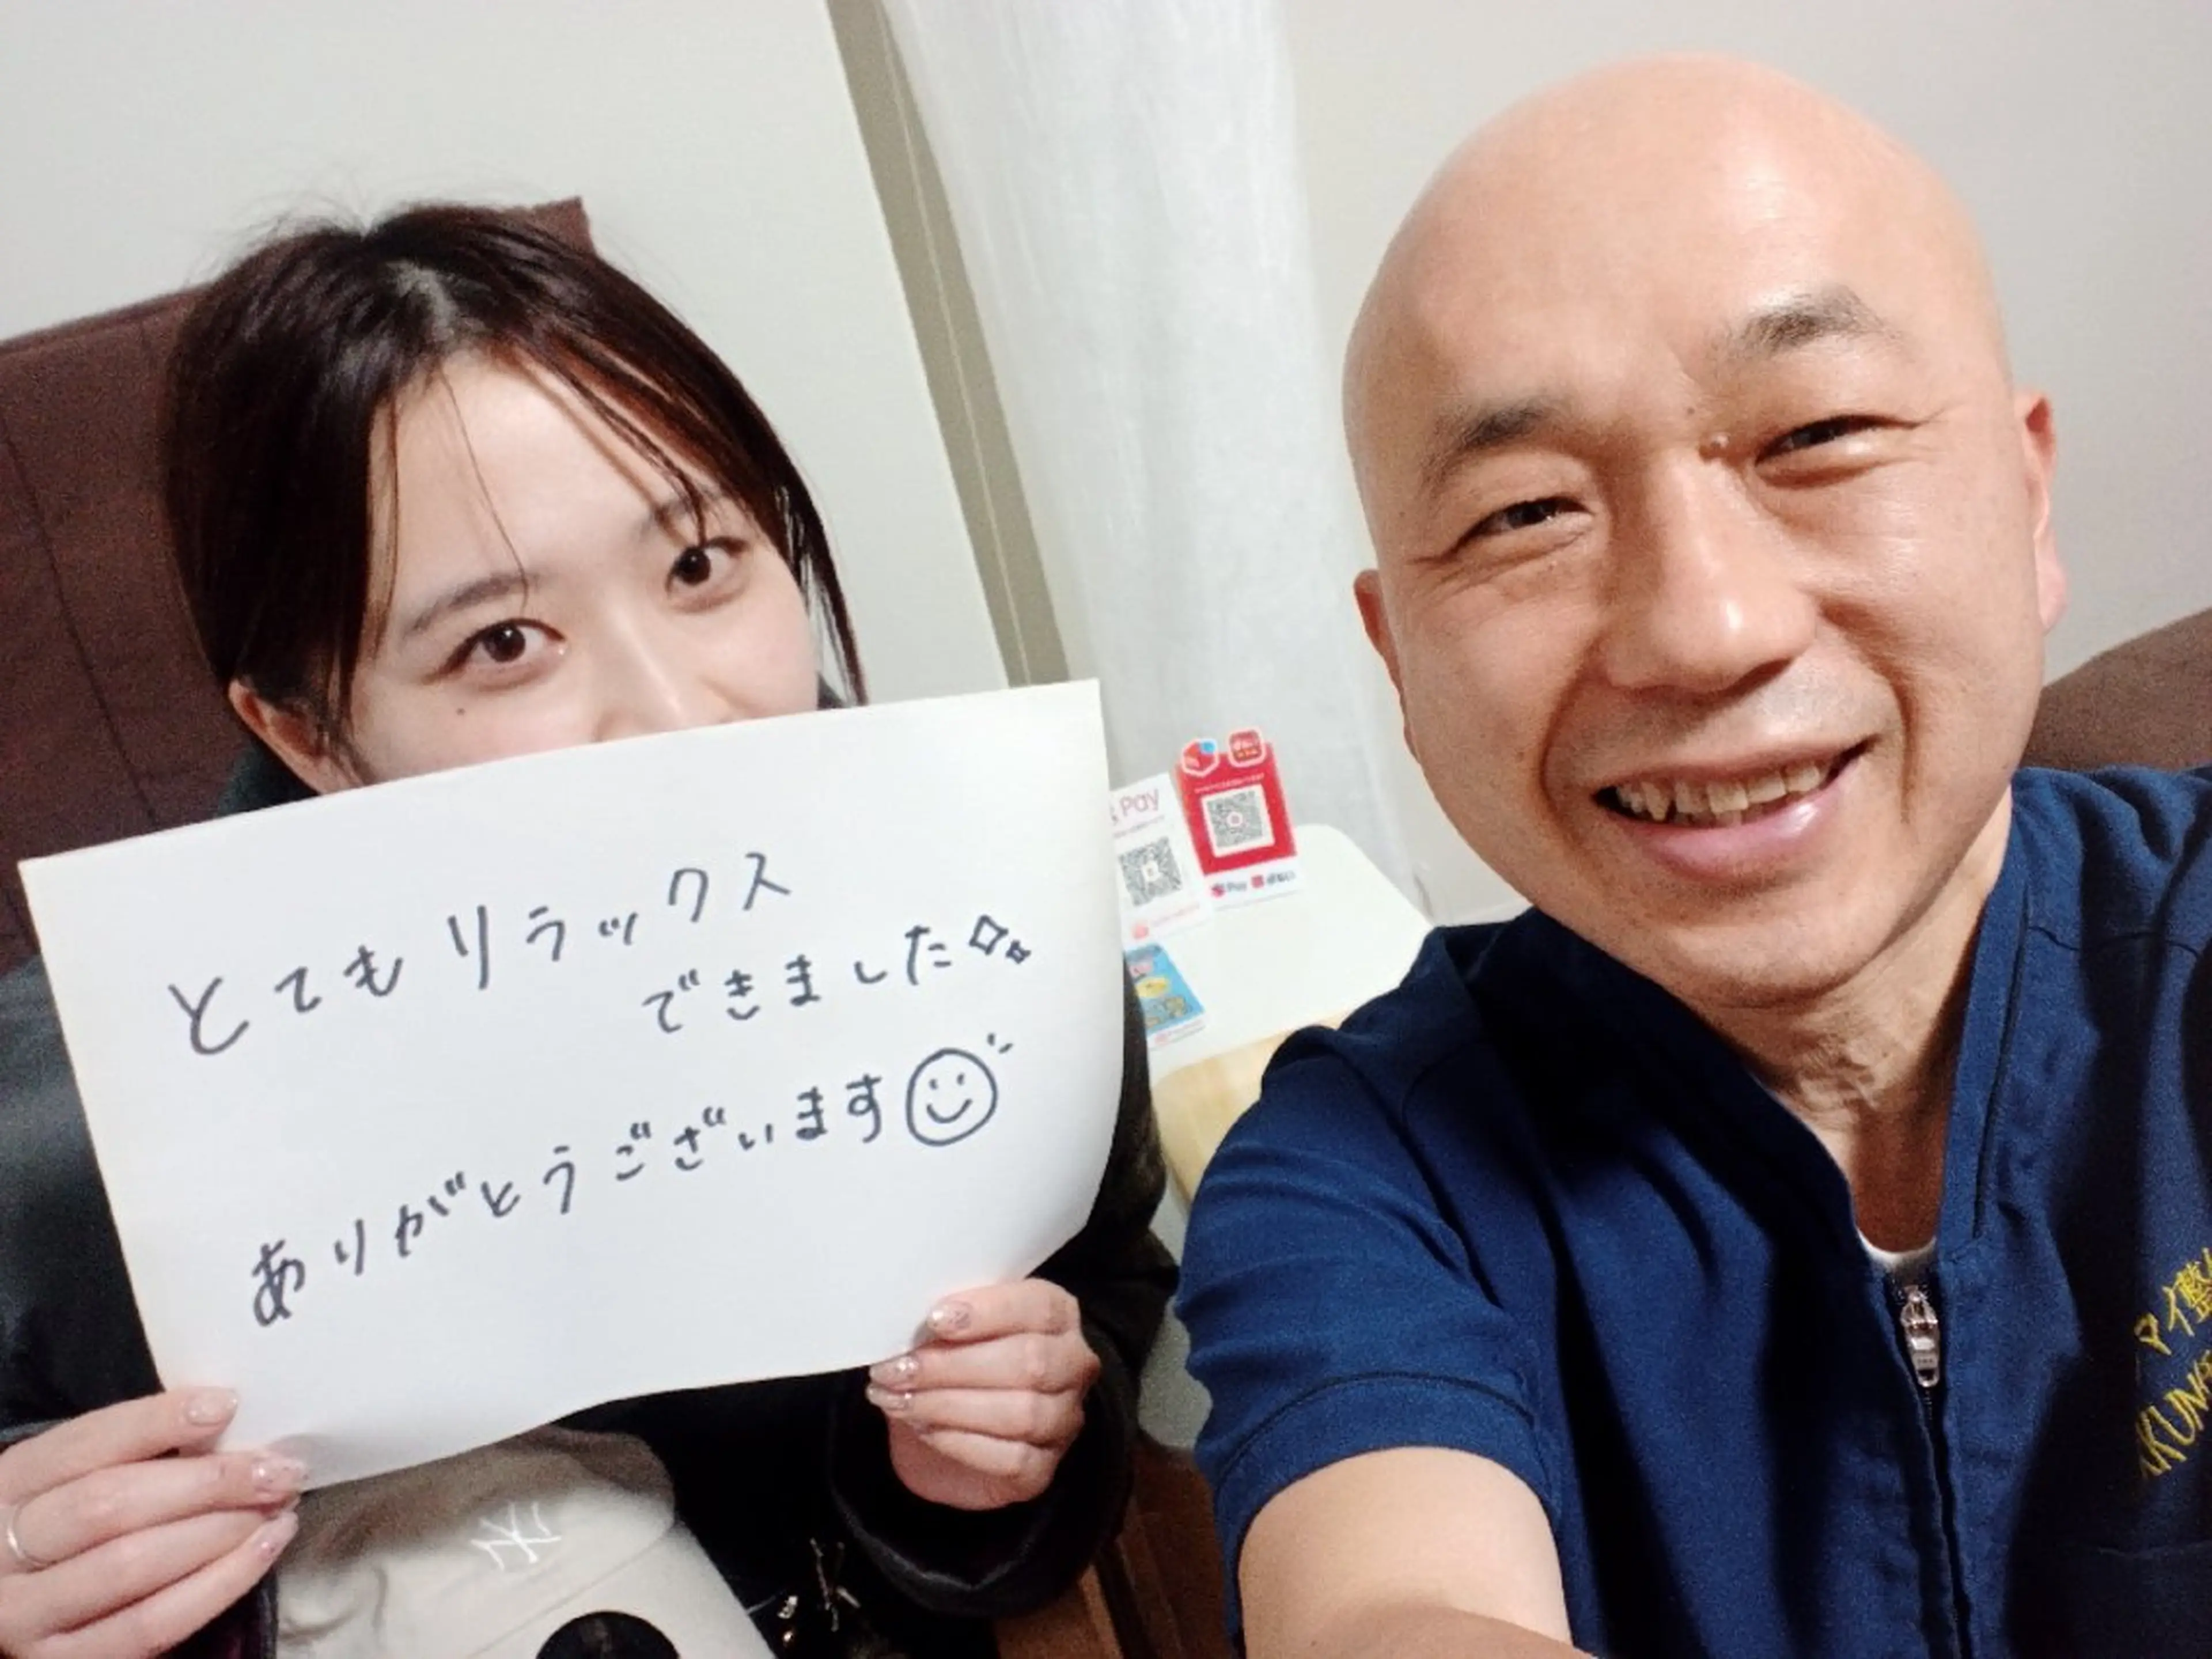 とてもリラックス
できました
ありがとうございます
Pay
Pay
NY